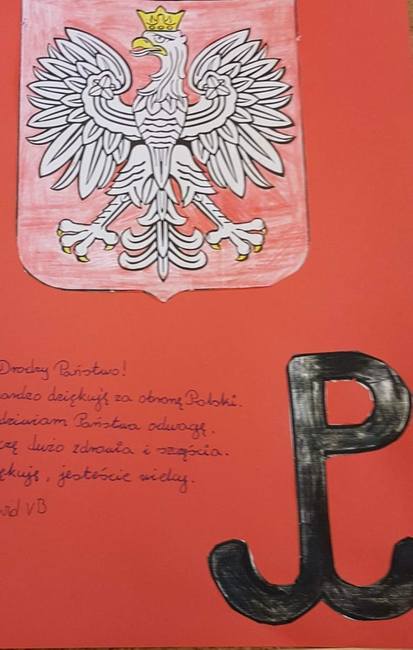 Drodzy Państwo!
ardzo dziękuję za obronę Polski.
dziwiam Państwa odwagę.
czę dużo zdrowia i szczęścia.
ękuję, jesteście wielcy.
wid VB
P